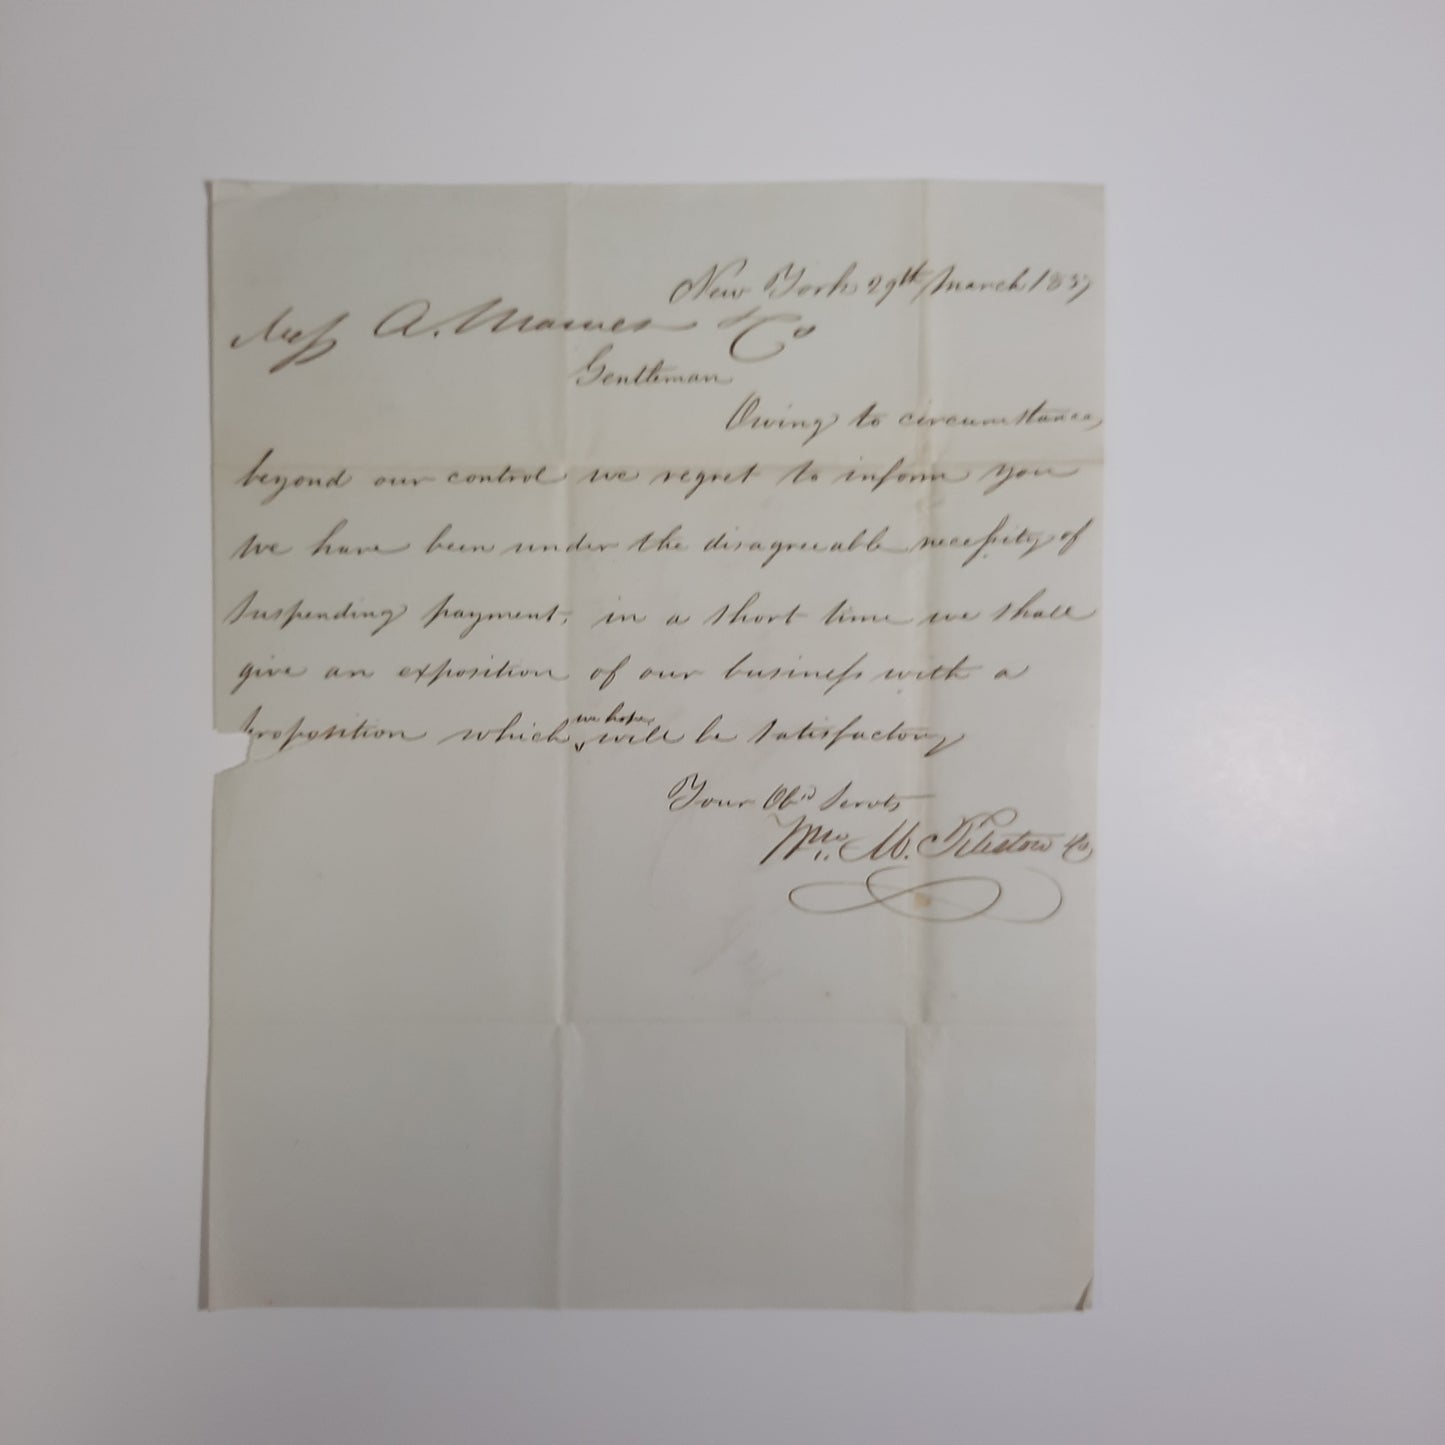 New York 29th March 1837
Mess A. & Co
Gentleman
Owing to circumstances
beyond our control we regret to inform you
we have been under the disagreeable necessity of
suspending payment, in a short time we shall
give an exposition of our business with a
proposition which we hope will be satisfactory
Your Obd Servts
Wm. M. & Co